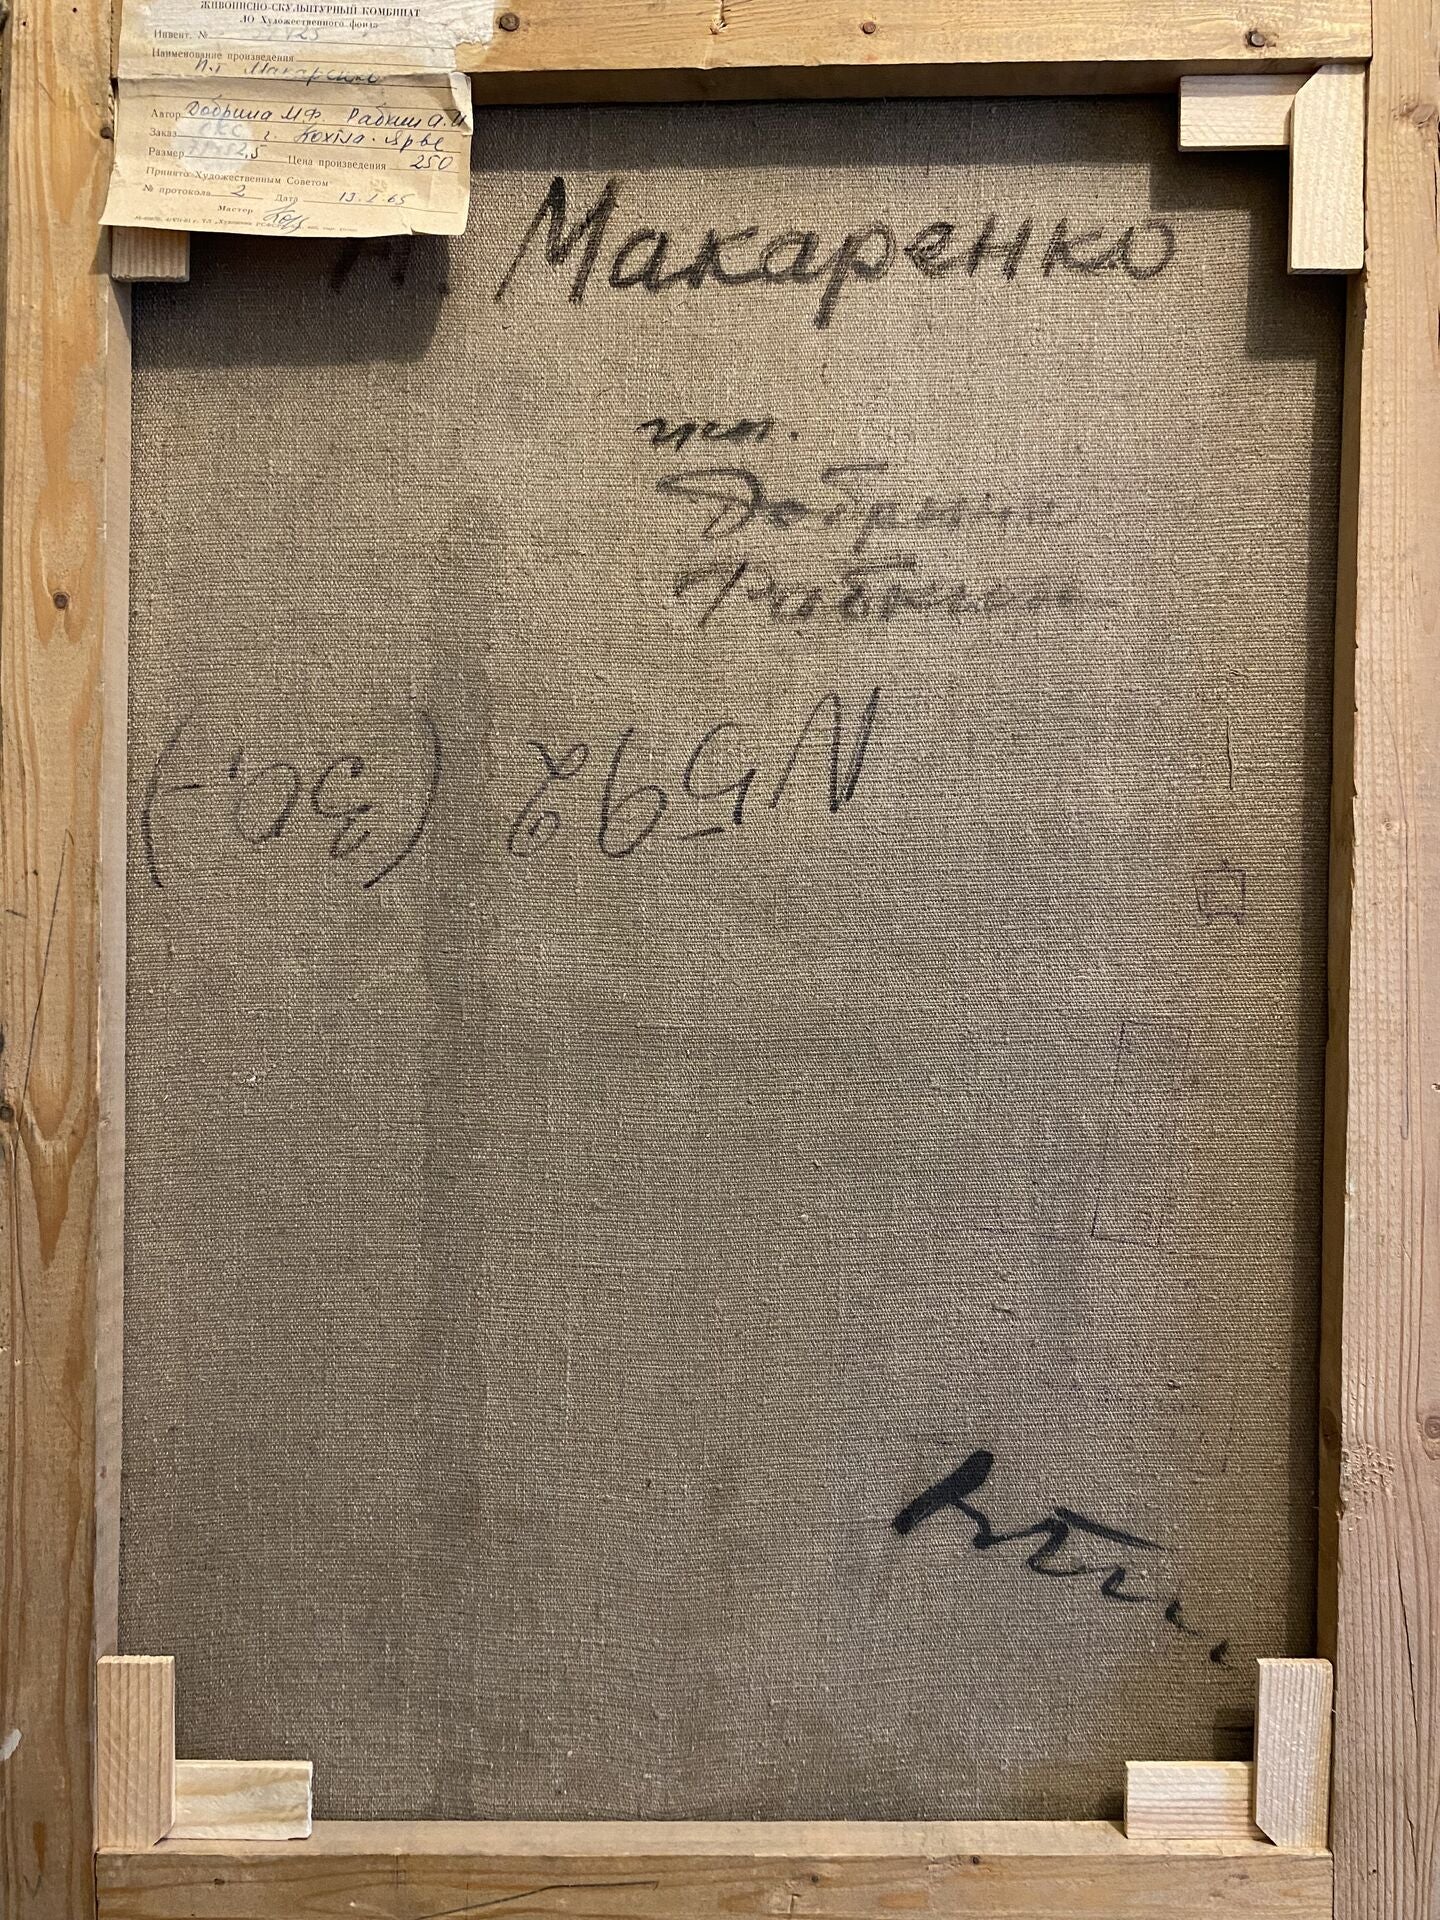 ЖИВОПИСНО-СКУЛЬПТУРНЫЙ КОМБИНАТ
ЛО Художественного фонда
Инвент. №
Наименование произведения
Макаренко
Автор Добрина М.Ф. Рабкин А.И
Заказ ОКС г. Кохтла-Ярве
Размер 2,5 Цена произведения 250
Принято Художественным Советом
№ протокола 2 Дата 13.1.65
Мастер
А. Макаренко
исп.
Добрина
Рабкин
N 592 (30,-)